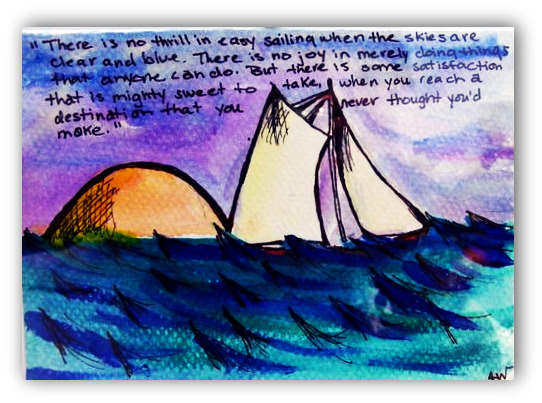 "There is no thrill in easy sailing when the skies are
clear and blue. There is no joy in merely doing things
that anyone can do. But there is some satisfaction
that is mighty sweet to take, when you reach a
destination that you never thought you'd
make."
AW